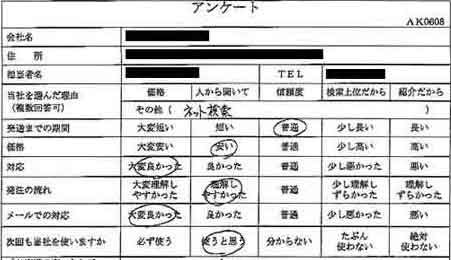 アンケート
AK0608
会社名
住 所
担当者名 TEL
当社を選んだ理由 価格 人から聞いて 信頼度 検索上位だから 紹介だから
(複数回答可) その他 ( ネット検索 )
発送までの期間 大変短い 短い 普通 少し長い 長い
価格 大変安い 安い 普通 少し高い 高い
対応 大変良かった 良かった 普通 少し悪かった 悪い
発注の流れ 大変理解しやすかった 理解しやすかった 普通 少し理解しずらかった 理解しずらかった
メールでの対応 大変良かった 良かった 普通 少し悪かった 悪い
次回も当社を使いますか 必ず使う 使うと思う 分からない たぶん使わない 絶対使わない